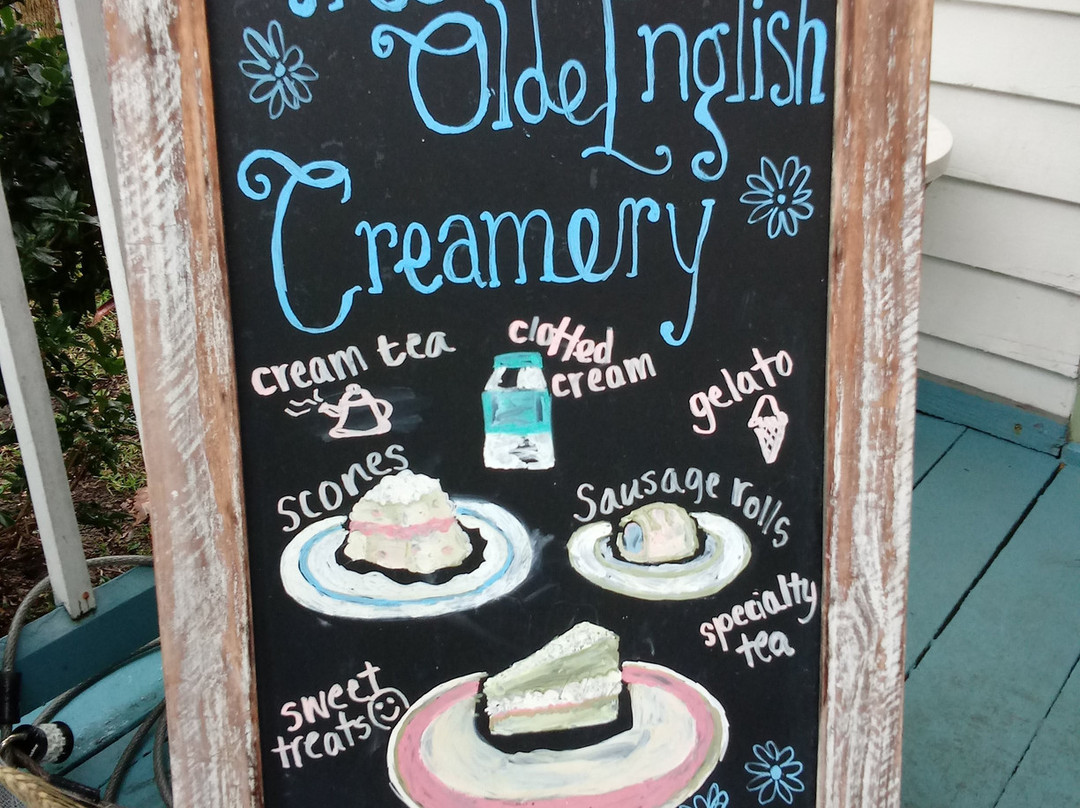 Olde English
Creamery
cream tea
clotted
cream
gelato
scones
Sausage rolls
specialty
tea
sweet
treats